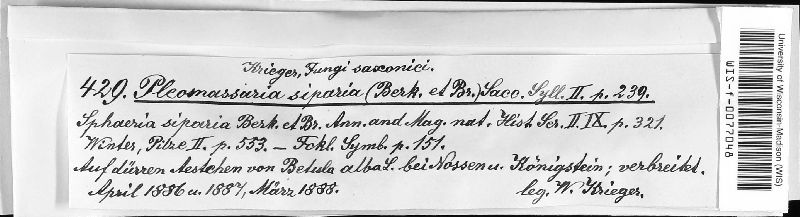 Krieger, Fungi saxonici.
429. Pleomassaria siparia (Berk. et Br.) Sacc. Syll. II. p. 239.
Sphaeria siparia Berk. et Br. Ann. and Mag. nat. Hist. Ser. II. IX. p. 321.
Winter, Pilze II. p. 553. — Fckl. Symb. p. 151.
Auf dürren Aestchen von Betula alba L. bei Nossen u. Königstein; verbreitet.
April 1886 u. 1887, März 1888. leg. W. Krieger.
University of Wisconsin-Madison (WIS)
WIS-f-0077048